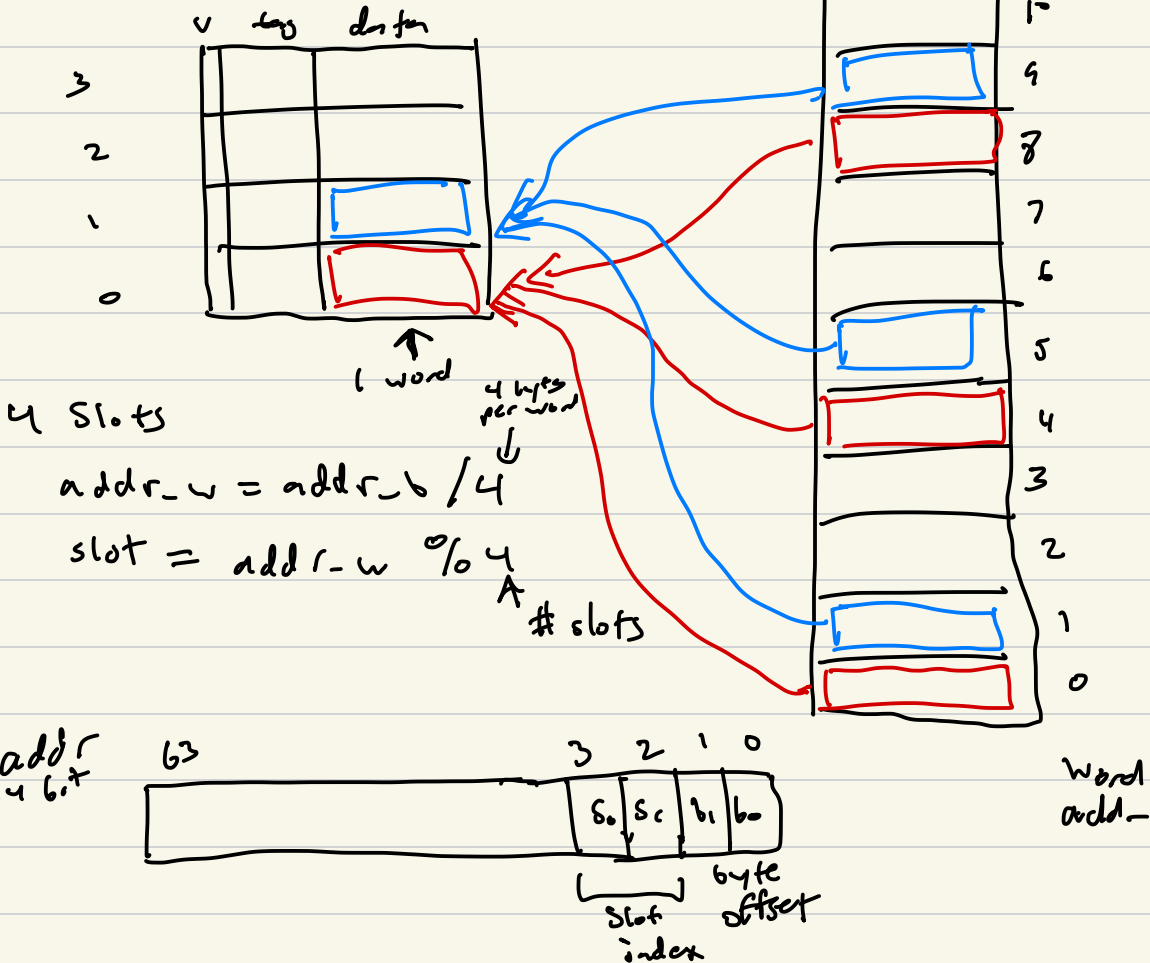 v tag data
3
2
1
0
1 word
4 bytes
per word
4 Slots
addr_w = addr_b / 4
slot = addr_w % 4
# slots
10
9
8
7
6
5
4
3
2
1
0
addr
4 bit
63 3 2 1 0
S₀ S₀ b₁ b₀
slot
index
byte
offset
Word
add-